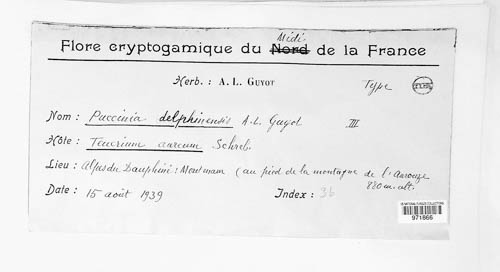 Midi
Flore cryptogamique du Nord de la France
Herb. : A. L. GUYOT
Type
Nom : Puccinia delphinensis A. L. Guyot III
Hôte : Teucrium aureum Schreb.
Lieu : Alpes du Dauphiné : Montmaur (au pied de la montagne de l'Aurouze
880 m. alt.
Date : 15 août 1939
Index : 36
US NATIONAL FUNGUS COLLECTIONS
971866